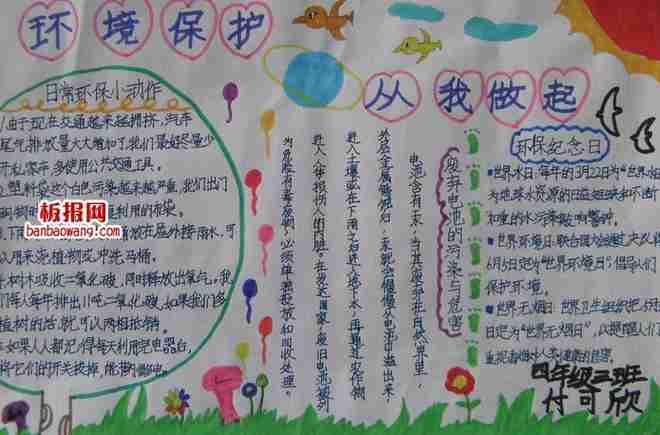 环境保护
从我做起
日常环保小动作
1由于现在交通越来越拥挤,汽车
尾气排放量大大增加了,我们最好尽量少
开私家车,多使用公共交通工具。
2.塑料袋这个白色污染越来越严重,我们出门
利用的布袋。
接雨水,可
以用来浇植物或冲洗马桶。
树木吸收二氧化碳,同时释放出氧气。我
们每人每年排出1吨二氧化碳,如果我们多
植树的话,就可以两相抵销。
如果人人都记得每天利用完电器后,
将它们的开关拔掉,能省
板报网
banbaowang.com
废弃电池的污染与危害
电池含有汞,当其废弃在自然界里,
外层金属锈蚀后,汞就会慢慢从电池中溢出来,
进入土壤或在下雨之后进入地下水,再通过农作物
进入人体,损伤人的肾脏。在发达国家,废旧电池被列
为危险有毒废物,必须单独投放和回收处理。
环保纪念日
世界水日:每年的3月22日为“世界水日
为地球水资源的日益短缺和不断
加重的水污染敲响警钟。
世界环境日:联合国大会通过决议将
6月5日定为“世界环境日”,倡导人们
保护环境。
世界无烟日:世界卫生组织把5月
日定为“世界无烟日”,以提醒人们
四年级三班
付可欣